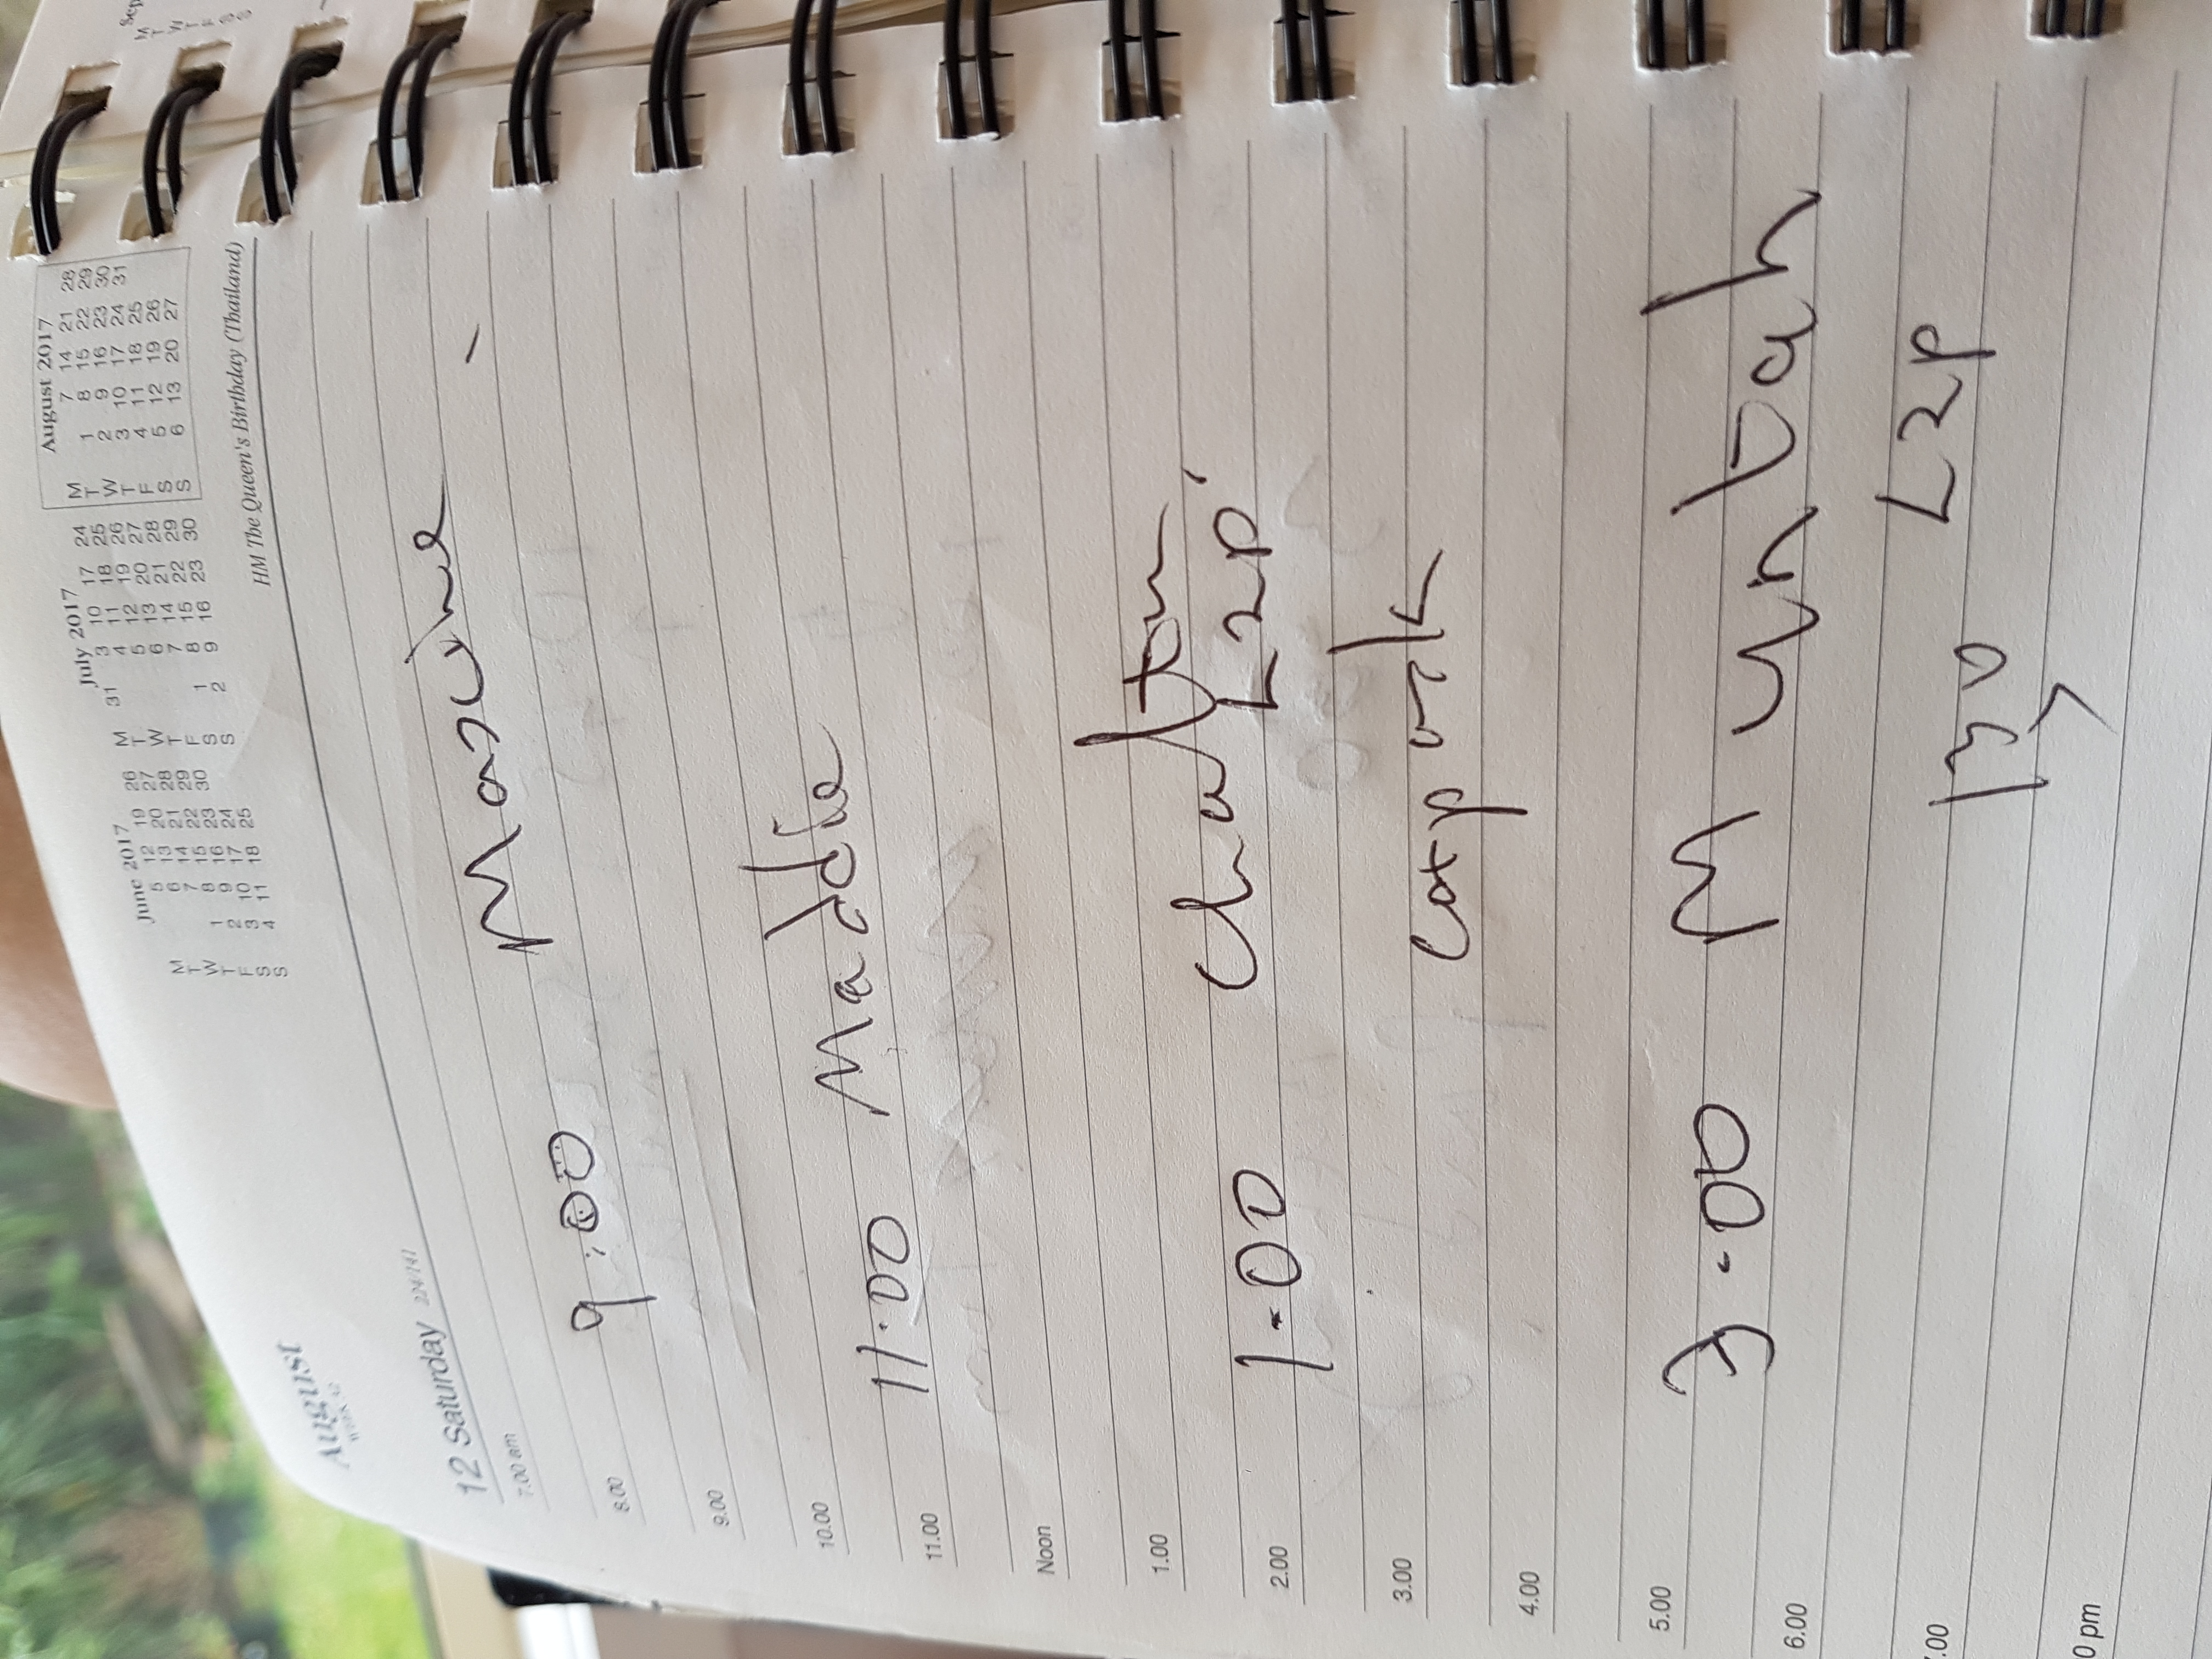 Sep
M
T
W
T
F
S
S
August
12 Saturday 224/141
June 2017
M 5 12 19 26
T 6 13 20 27
W 7 14 21 28
T 1 8 15 22 29
F 2 9 16 23 30
S 3 10 17 24
S 4 11 18 25
July 2017
M 31 3 10 17 24
T 4 11 18 25
W 5 12 19 26
T 6 13 20 27
F 7 14 21 28
S 1 8 15 22 29
S 2 9 16 23 30
August 2017
M 7 14 21 28
T 1 8 15 22 29
W 2 9 16 23 30
T 3 10 17 24 31
F 4 11 18 25
S 5 12 19 26
S 6 13 20 27
HM The Queen's Birthday (Thailand)
7.00 am
9:00
8.00
9.00
10.00
11.00 Maddie
11.00
Noon
1.00
1.00 Charlton
L2P
2.00
3.00
4.00
5.00
3.00
6.00
7.00
L2P
0 pm